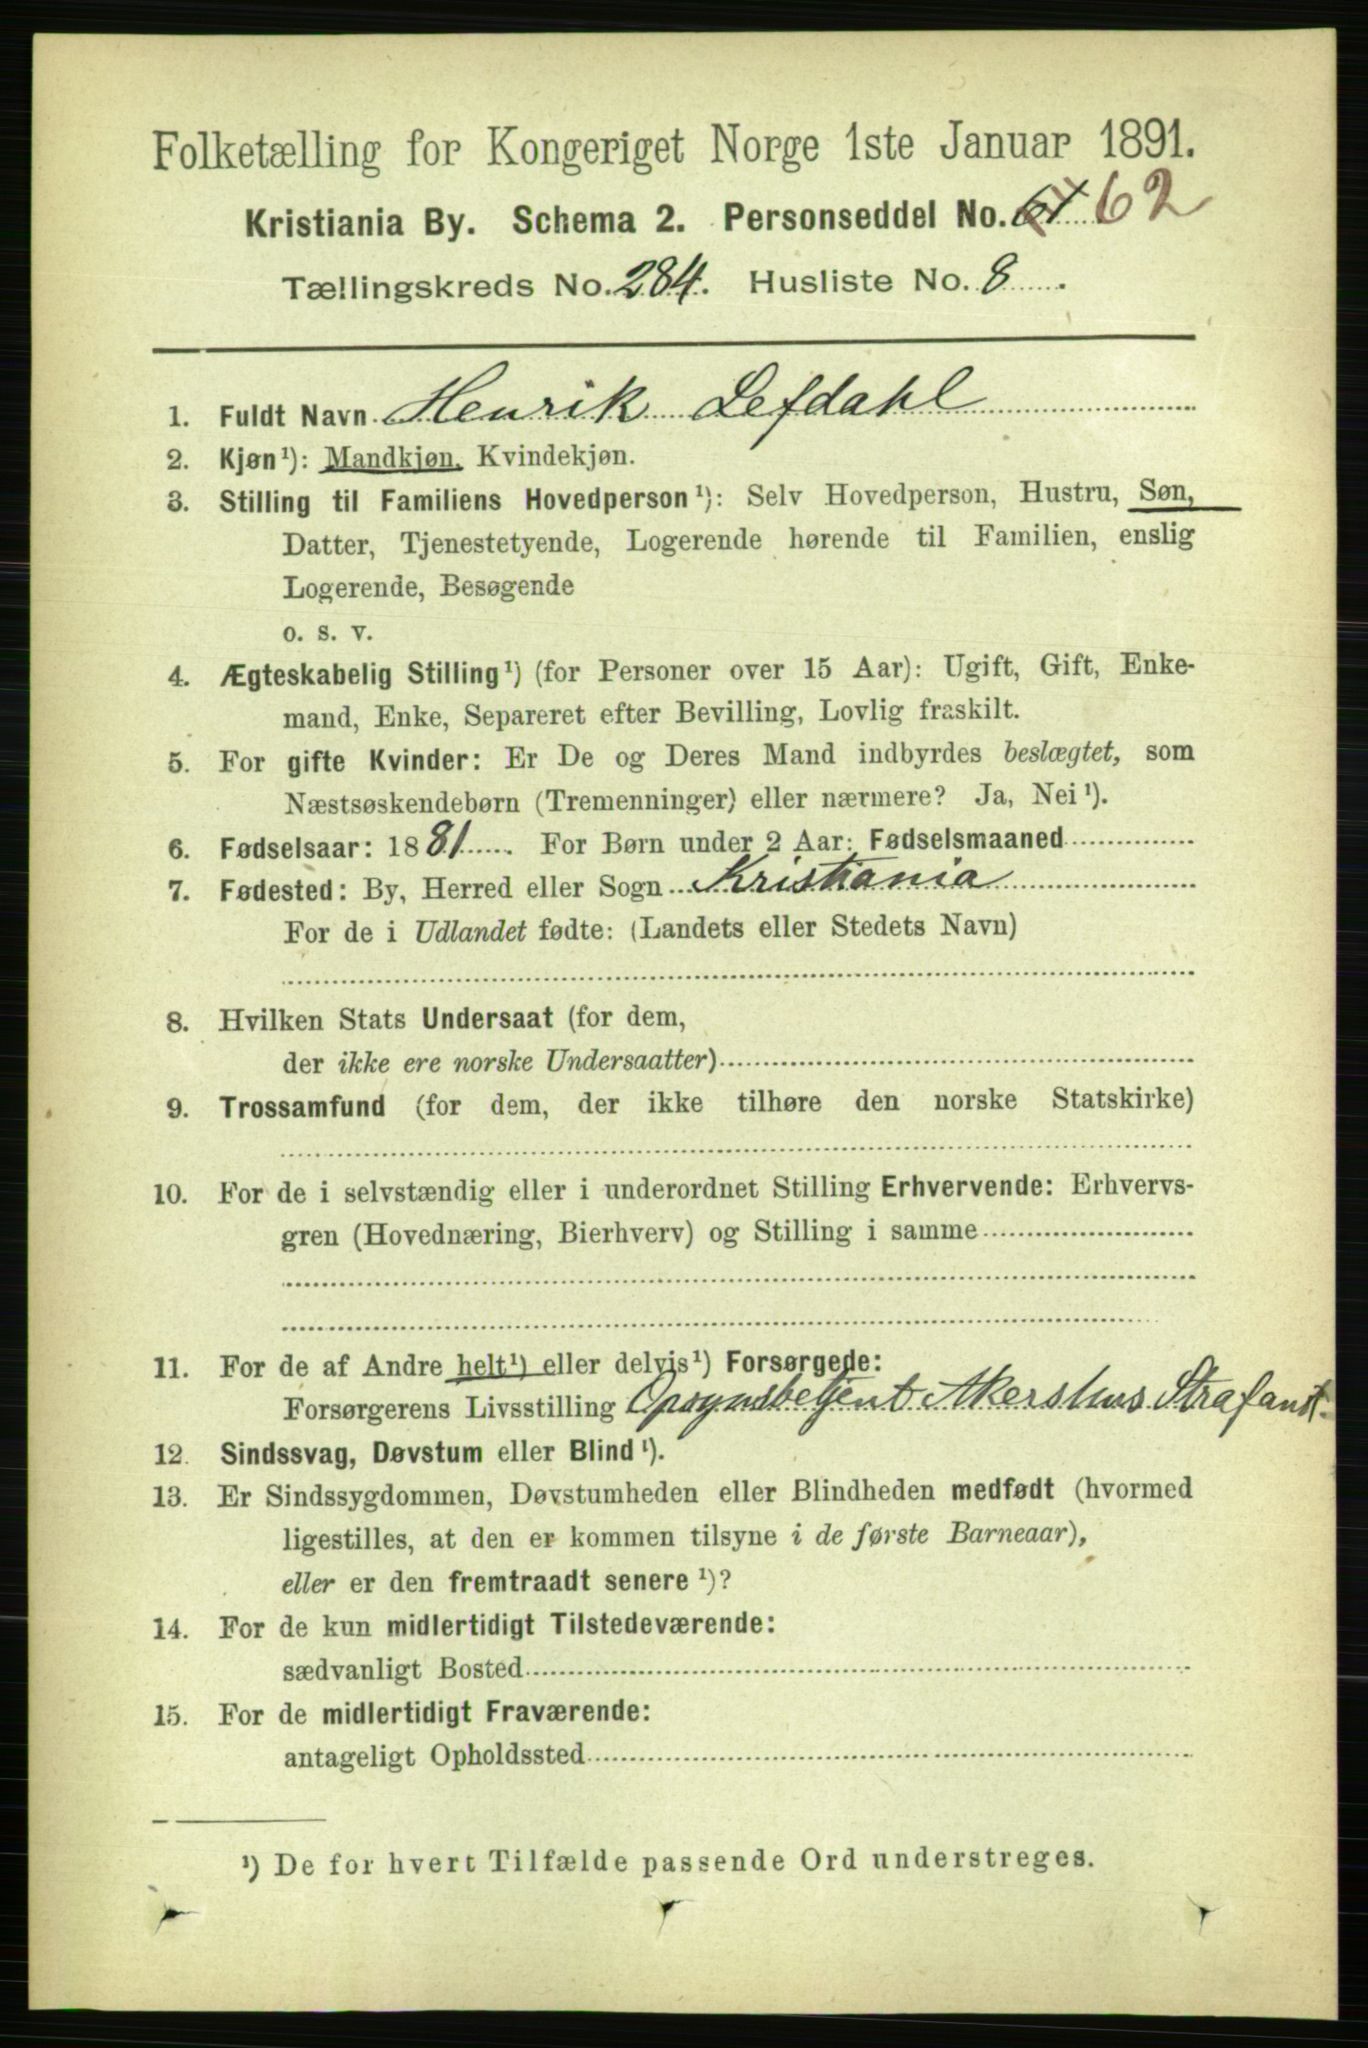 Folketælling for Kongeriget Norge 1ste Januar 1891.
Kristiania By. Schema 2. Personseddel No. 61 62
Tællingskreds No. 284. Husliste No. 8
1. Fuldt Navn Henrik Lefdahl
2. Kjøn¹): Mandkjøn, Kvindekjøn.
3. Stilling til Familiens Hovedperson¹): Selv Hovedperson, Hustru, Søn,
Datter, Tjenestetyende, Logerende hørende til Familien, enslig
Logerende, Besøgende
o. s. v.
4. Ægteskabelig Stilling¹) (for Personer over 15 Aar): Ugift, Gift, Enke-
mand, Enke, Separeret efter Bevilling, Lovlig fraskilt.
5. For gifte Kvinder: Er De og Deres Mand indbyrdes beslægtet, som
Næstsøskendebørn (Tremenninger) eller nærmere? Ja, Nei¹).
6. Fødselsaar: 1881. For Børn under 2 Aar: Fødselsmaaned
7. Fødested: By, Herred eller Sogn Kristiania
For de i Udlandet fødte: (Landets eller Stedets Navn)
8. Hvilken Stats Undersaat (for dem,
der ikke ere norske Undersaatter)
9. Trossamfund (for dem, der ikke tilhøre den norske Statskirke)
10. For de i selvstændig eller i underordnet Stilling Erhvervende: Erhvervs-
gren (Hovednæring, Bierhverv) og Stilling i samme
11. For de af Andre helt¹) eller delvis¹) Forsørgede:
Forsørgerens Livsstilling Opsynsbetjent Akershus Strafanst.
12. Sindssvag, Døvstum eller Blind¹).
13. Er Sindssygdommen, Døvstumheden eller Blindheden medfødt (hvormed
ligestilles, at den er kommen tilsyne i de første Barneaar),
eller er den fremtraadt senere¹)?
14. For de kun midlertidigt Tilstedeværende:
sædvanligt Bosted
15. For de midlertidigt Fraværende:
antageligt Opholdssted
¹) De for hvert Tilfælde passende Ord understreges.